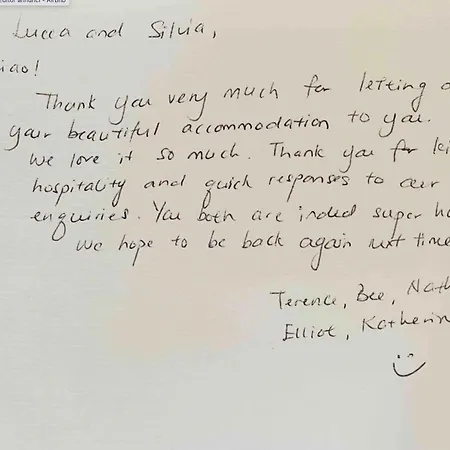 Lucca and Silvia,
iao!
Thank you very much for letting o
your beautiful accommodation to you.
We love it so much. Thank you for ki
hospitality and quick responses to our
enquiries. You both are indeed super ho
We hope to be back again next time
Terence, Bee, Nath
Elliot, Katherin